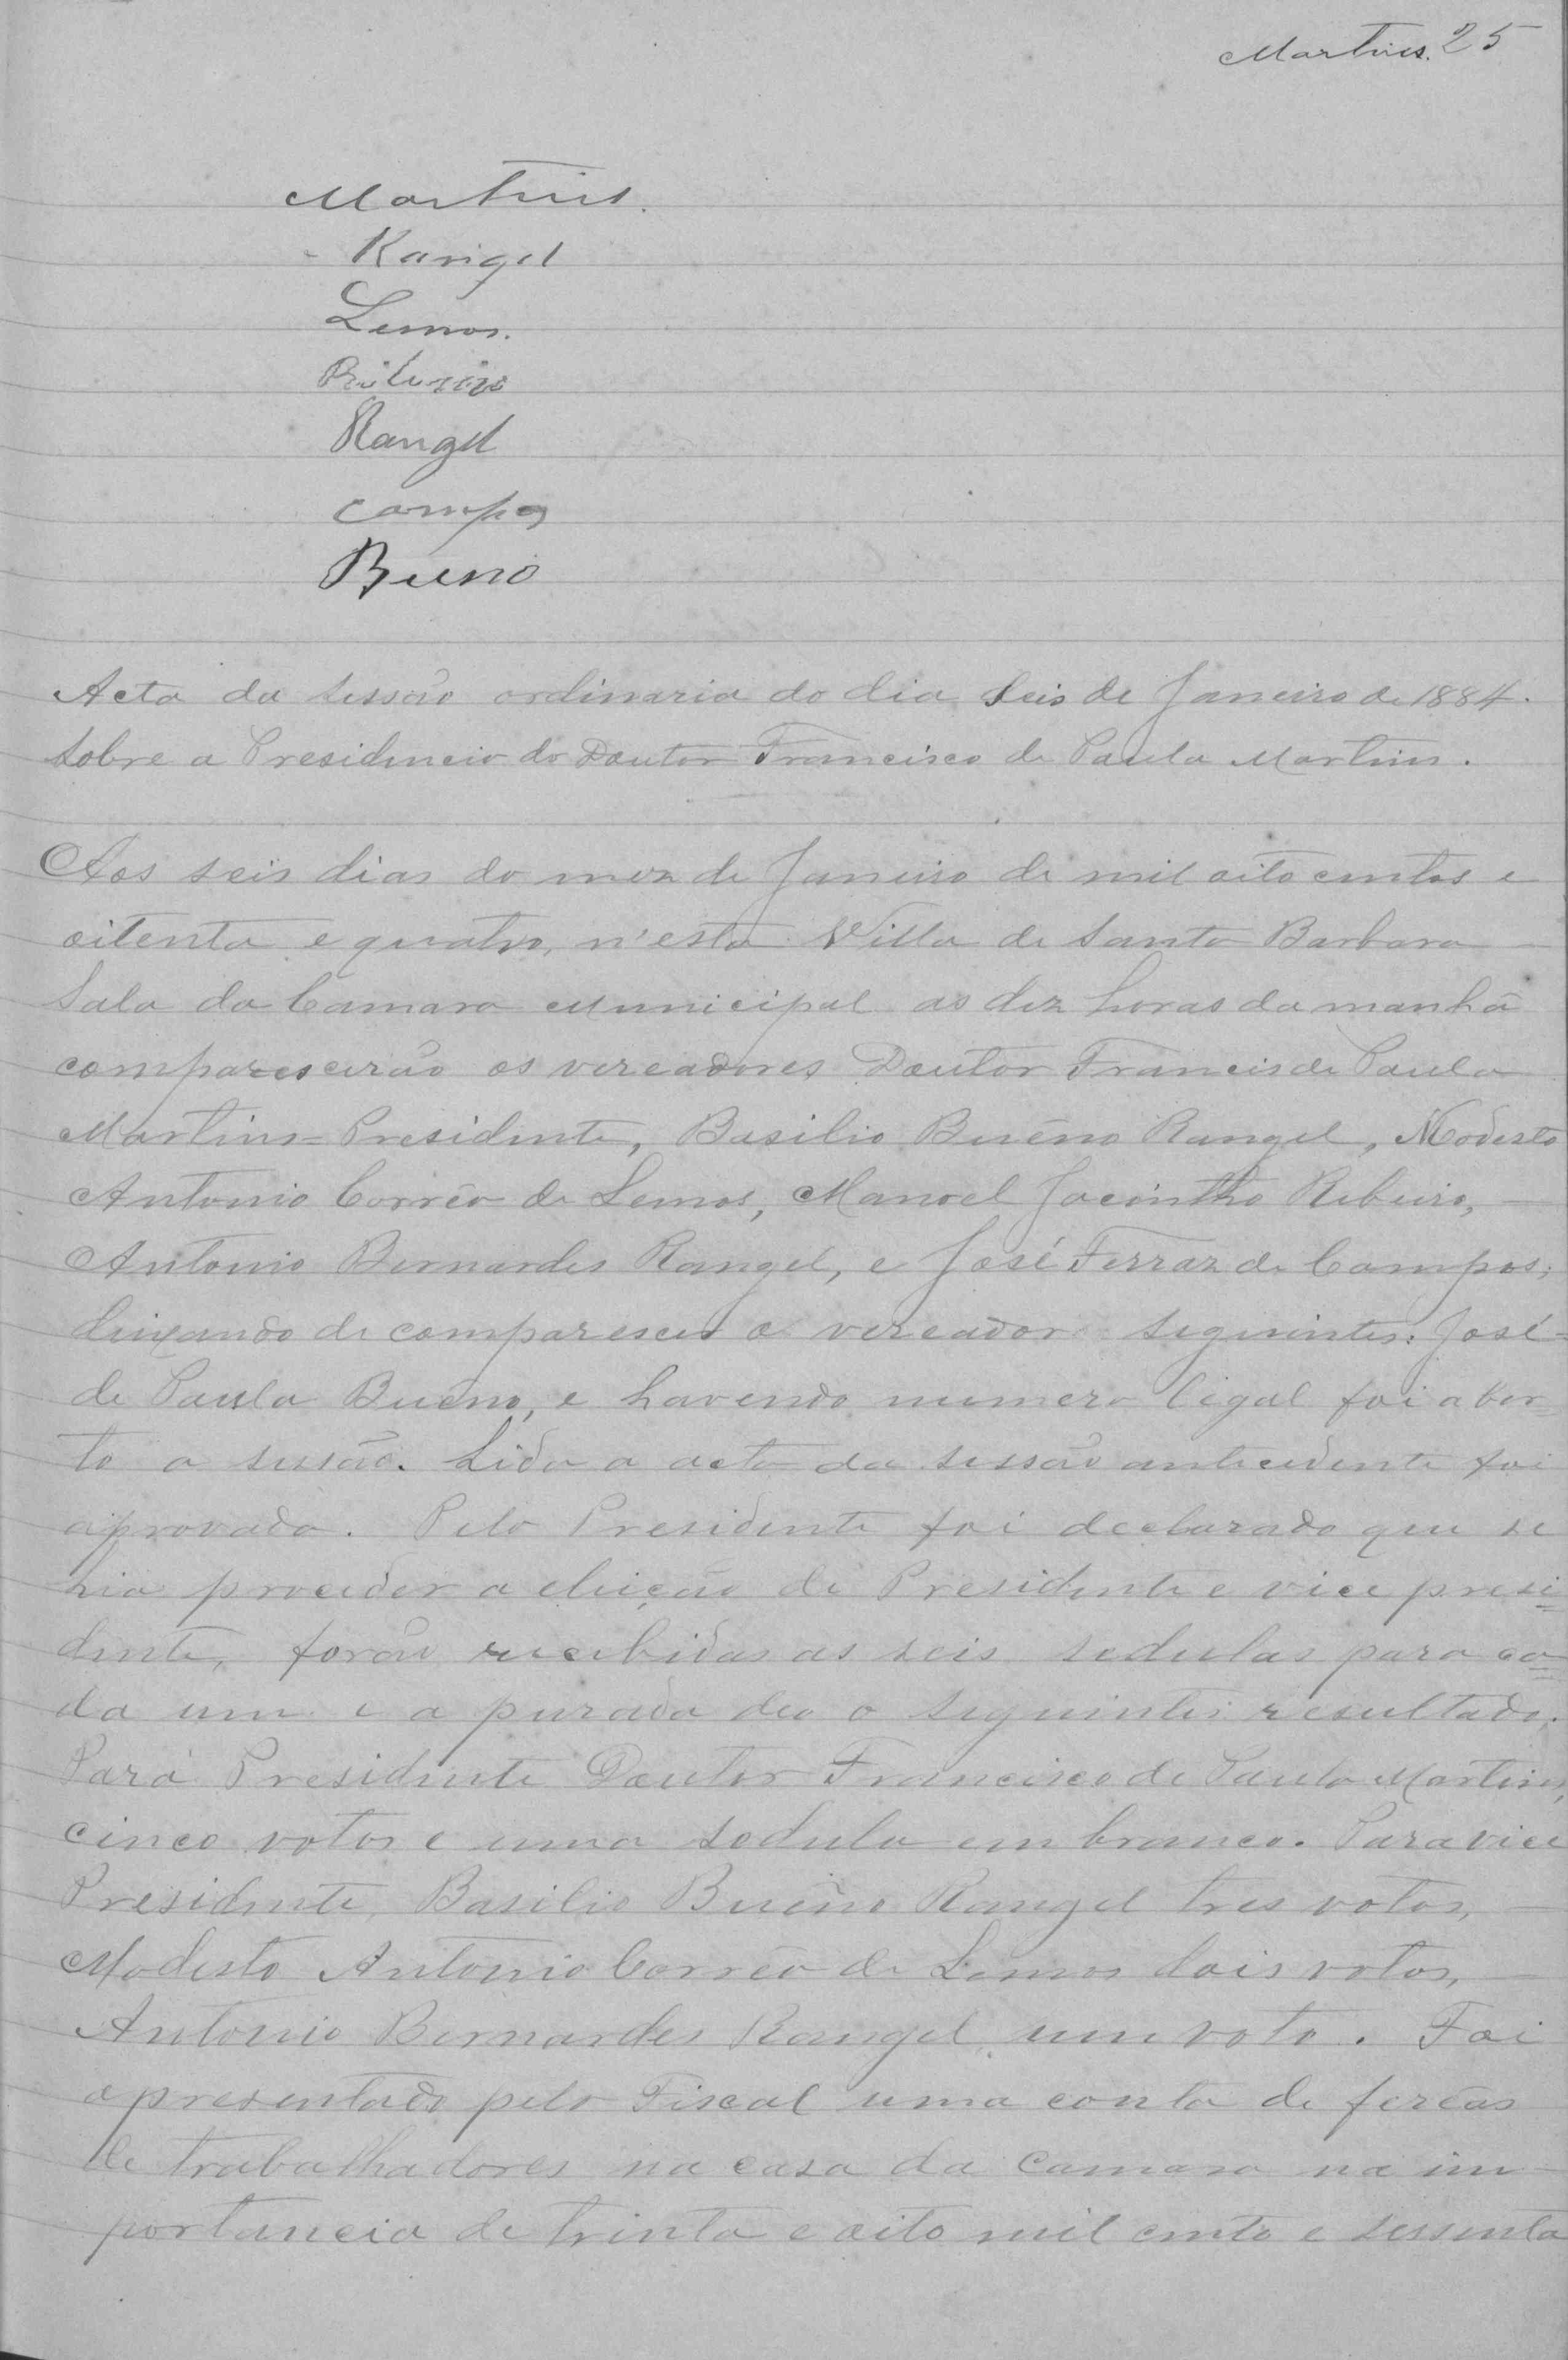 Martins. 25
Martins.
Rangel
Lemos.
Ribeiro
Rangel
Campos
Bueno
Acta da sessão ordinaria do dia seis de Janeiro de 1884.
Sobre a Presidencia do Doutor Francisco de Paula Martins.
Aos seis dias do mez de Janeiro de mil oito centos e
oitenta e quatro, n'esta Villa de Santa Barbara
Sala da Camara Municipal as dez horas da manhã
comparescerão os vereadores Doutor Francis de Paula
Martins = Presidente, Basilio Buêno Rangel, Modesto
Antonio Corrêa de Lemos, Manoel Jacintho Ribeiro,
Antonio Bernardes Rangel, e José Ferraz de Campos;
deixando de comparescer o vereador seguintes: José
de Paula Buêno, e havendo numero ligal foi aber=
ta a sessão. Lida a acta da sessão antecedente foi
aprovada. Pelo Presidente foi declarado que se
hia proceder a eleição de Presidente e vice presi=
dente, forão recebidas as seis sedulas para ca=
da um e a purada deo o seguintes resultado.
Para Presidente Doutor Francisco de Paula Martins,
cinco votos e uma sedula em branco. Para vice
Presidente, Basilio Buêno Rangel tres votos,
Modesto Antonio Corrêa de Lemos dois votos,
Antonio Bernardes Rangel, um voto. Foi
apresentado pelo Fiscal uma conta de fereas
de trabalhadores na casa da Camara na im
portancia de trinta e oito mil cento e sessenta